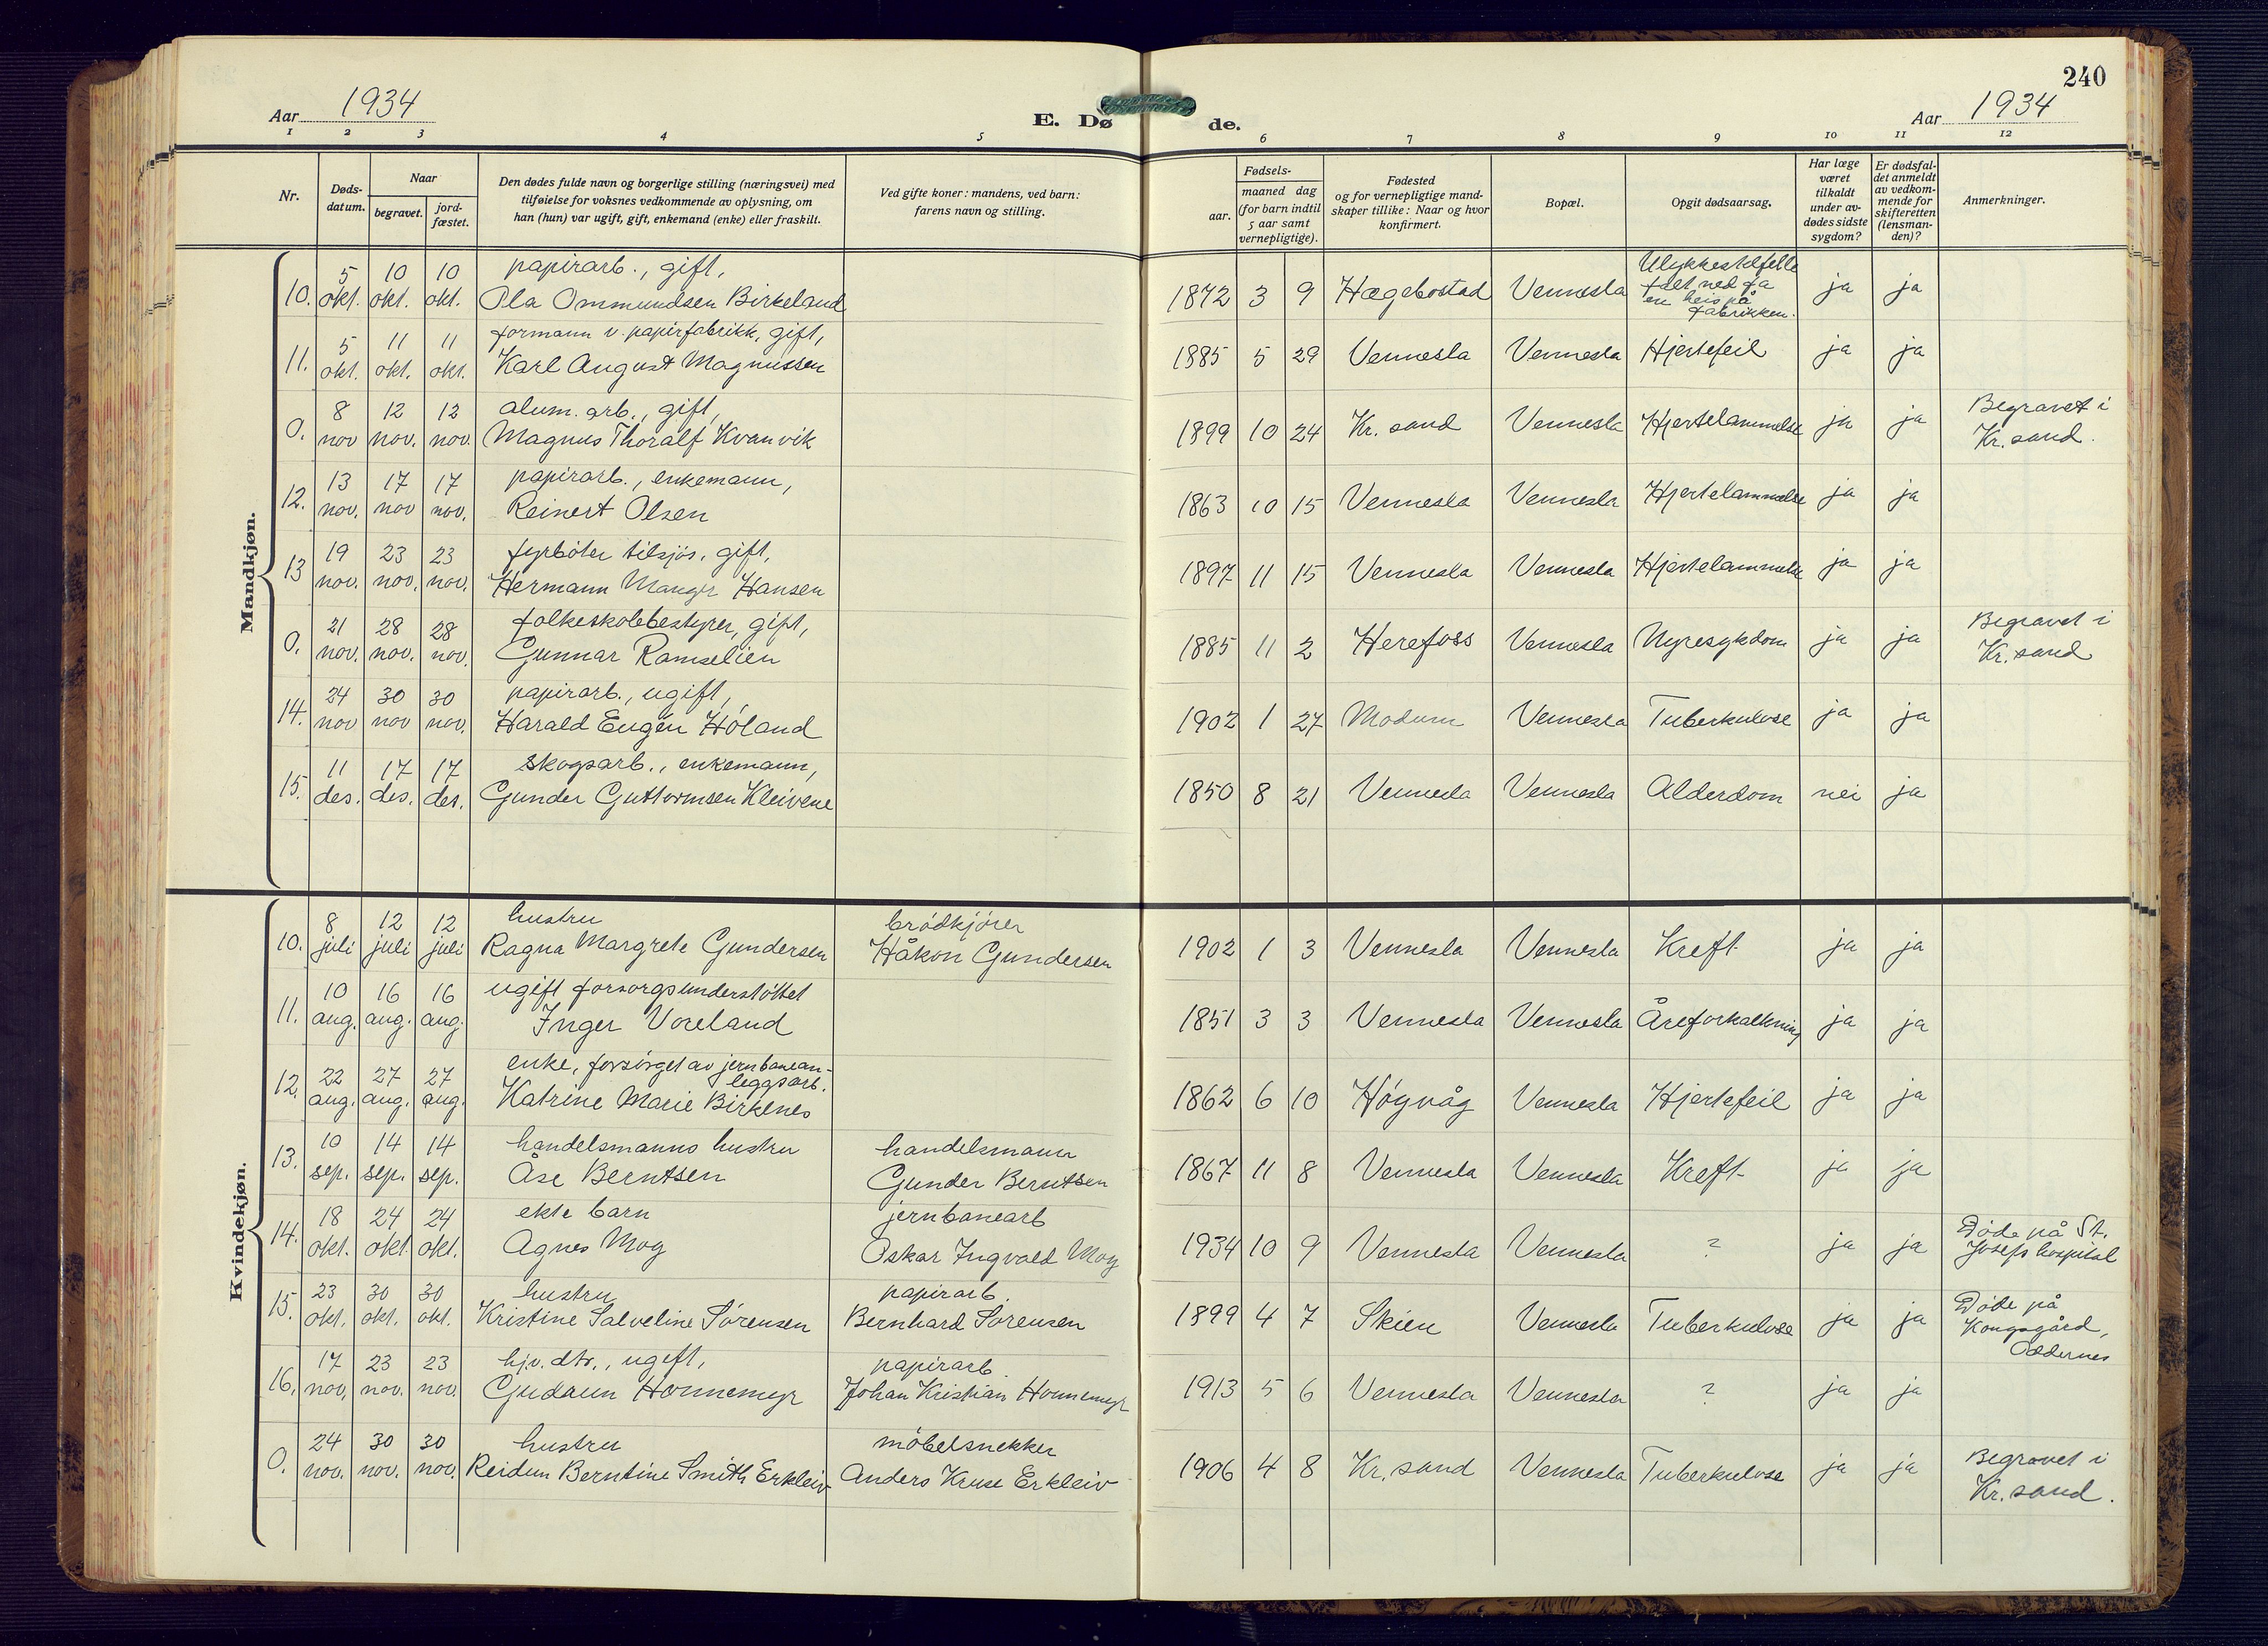 240
Aar 1934
E. Døde.
Aar 1934
1 2 3 4 5 6 7 8 9 10 11 12
Nr.
Døds-
datum.
Naar
begravet.
jord-
fæstet.
Den dødes fulde navn og borgerlige stilling (næringsvei) med
tilføielse for voksnes vedkommende av oplysning, om
han (hun) var ugift, gift, enkemand (enke) eller fraskilt.
Ved gifte koner: mandens, ved barn:
farens navn og stilling.
Fødsels-
aar.
maaned dag
(for barn indtil
5 aar samt
vernepligtige).
Fødested
og for vernepligtige mand-
skaper tillike: Naar og hvor
konfirmert.
Bopæl.
Opgit dødsaarsag.
Har læge
været
tilkaldt
under av-
dødes sidste
sygdom?
Er dødsfal-
det anmeldt
av vedkom-
mende for
skifteretten
(lensman-
den)?
Anmerkninger.
Mandkjøn.
10. 5 okt. 10 okt. 10 okt. papirarb., gift,
Ola Ommundsen Birkeland 1872 3 9 Hægebostad Vennesla Ulykkestilfelle
falt ned fa
en heis på
fabrikken. ja ja
11. 5 okt. 11 okt. 11 okt. formann v. papirfabrikk, gift,
Karl August Magnussen 1885 5 29 Vennesla Vennesla Hjertefeil ja ja
0. 8 nov 12 nov. 12 nov. alum. arb., gift,
Magnus Thoralf Kvanvik 1899 10 24 Kr. sand Vennesla Hjertelammelse ja ja Begravet i
Kr. sand.
12. 13 nov. 17 nov 17 nov. papirarb., enkemann,
Reinert Olsen 1863 10 15 Vennesla Vennesla Hjertelammelse ja ja
13 19 nov. 23 nov. 23 nov. fyrbøter tilsjøs, gift,
Hermann Hansen 1897 11 15 Vennesla Vennesla Hjertelammelse ja ja
0. 21 nov. 28 nov. 28 nov. folkeskolebestyrer, gift,
Gunnar Ramselien 1885 11 2 Herefoss Vennesla Nyresykdom ja ja Begravet i
Kr. sand
14. 24 nov 30 nov 30 nov. papirarb., ugift,
Harald Eugén Hóland 1902 1 27 Modum Vennesla Tuberkulose ja ja
15. 11 des. 17 des. 17 des. skogsarb., enkemann,
Gunder Guttormsen Kleivene 1850 8 21 Vennesla Vennesla Alderdom nei ja
Kvindekjøn.
10. 8 juli 12 juli 12 juli hustru
Ragna Margrete Gundersen brødkjører
Håkon Gundersen 1902 1 3 Vennesla Vennesla Kreft ja ja
11. 10 aug. 16 aug. 16 aug. ugift forsorgsunderstøttet
Inger Voreland 1851 3 3 Vennesla Vennesla Åreforkalkning ja ja
12. 22 aug. 27 aug. 27 aug. enke, forsørget av jernbanean-
leggsarb.
Katrine Marie Birkenes 1862 6 10 Høgvåg Vennesla Hjertefeil ja ja
13. 10 sep. 14 sep. 14 sep. handelsmanns hustru
Åse Berntsen handelsmann
Gunder Berntsen 1867 11 8 Vennesla Vennesla Kreft ja ja
14. 18 okt. 24 okt. 24 okt. ekte barn
Agnes Mog jernbanearb
Oskar Ingvald Mog 1934 10 9 Vennesla Vennesla ? ja ja Døde på St.
Josefs hospital
15. 23 okt. 30 okt. 30 okt. hustru
Kristine Salveline Sørensen papirarb.
Bernhard Sørensen 1899 4 7 Skien Vennesla Tuberkulose ja ja Døde på
Kongsgård,
Oddernes
16. 17 nov. 23 nov. 23 nov. hjv. dtr., ugift,
Gudrun Honnemyr papirarb.
Johan Kristian Honnemyr 1913 5 6 Vennesla Vennesla ? ja ja
0. 24 nov. 30 nov. 30 nov. hustru
Reidun Berntine Smith Erkleiv møbelsnekker
Anders Kruse Erkleiv 1906 4 8 Kr. sand Vennesla Tuberkulose ja ja Begravet i
Kr. sand.